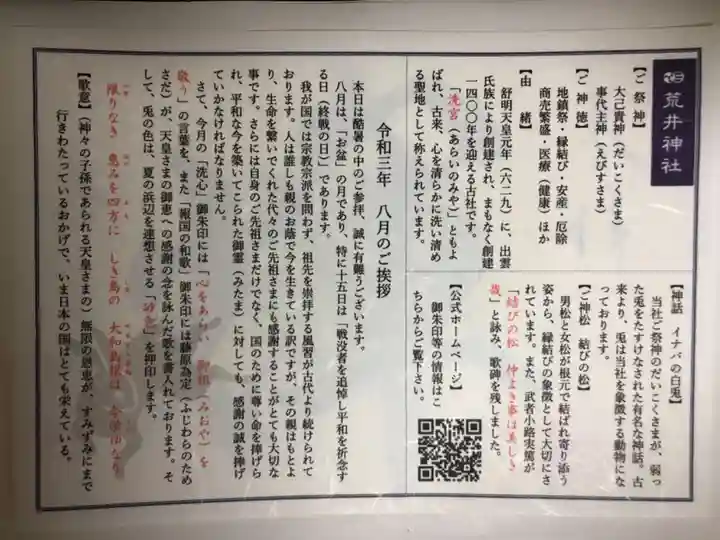 荒井神社
【ご祭神】
大己貴神(だいこくさま)
事代主神(えびすさま)
【ご神徳】
地鎮祭・縁結び・安産・厄除
商売繁盛・医療(健康)ほか
【由　緒】
舒明天皇元年(六二九)に、出雲
氏族により創建され、まもなく創建
一四〇〇年を迎える古社です。
「洗宮(あらいのみや)」ともよ
ばれ、古来、心を清らかに洗い清め
る聖地として称えられています。
【神話　イナバの白兎】
当社ご祭神のだいこくさまが、弱っ
た兎をたすけなされた有名な神話。古
来より、兎は当社を象徴する動物にな
っております。
【ご神松　結びの松】
男松と女松が根元で結ばれ寄り添う
姿から、縁結びの象徴として大切にさ
れています。また、武者小路実篤が
「結びの松　仲よき事は美しき
哉」と詠み、歌碑を残しました。
【公式ホームページ】
御朱印等の情報はこ
ちらからご覧下さい。
令和三年　八月のご挨拶
本日は酷暑の中のご参拝、誠に有難うございます。
八月は、「お盆」の月であり、特に十五日は「戦没者を追悼し平和を祈念す
る日(終戦の日)」であります。
我が国では宗教宗派を問わず、祖先を崇拝する風習が古代より続けられて
おります。人は誰しも親のお蔭で今を生きている訳ですが、その親はもとよ
り、生命を繋いでくれた代々のご先祖さまにも感謝することがとても大切な
事です。さらには自身のご先祖さまだけでなく、国のために尊い命を捧げら
れ、平和な今を築いてこられた御霊(みたま)に対しても、感謝の誠を捧げ
ていかなければなりません。
さて、今月の「洗心」御朱印には「心をあらい　御祖(みおや)を
敬う」の言葉を、また「報国の和歌」御朱印には藤原為定(ふじわらのため
さだ)が、天皇さまの御恵への感謝の念を詠んだ歌を書入れております。そ
して、兎の色は、夏の浜辺を連想させる「」を押印します。
限りなき　恵みを四方に　しき島の　大和島根は　今栄ゆなり
【歌意】(神々の子孫であられる天皇さまの)無限の恩恵が、すみずみにまで
行きわたっているおかげで、いま日本の国はとても栄えている。